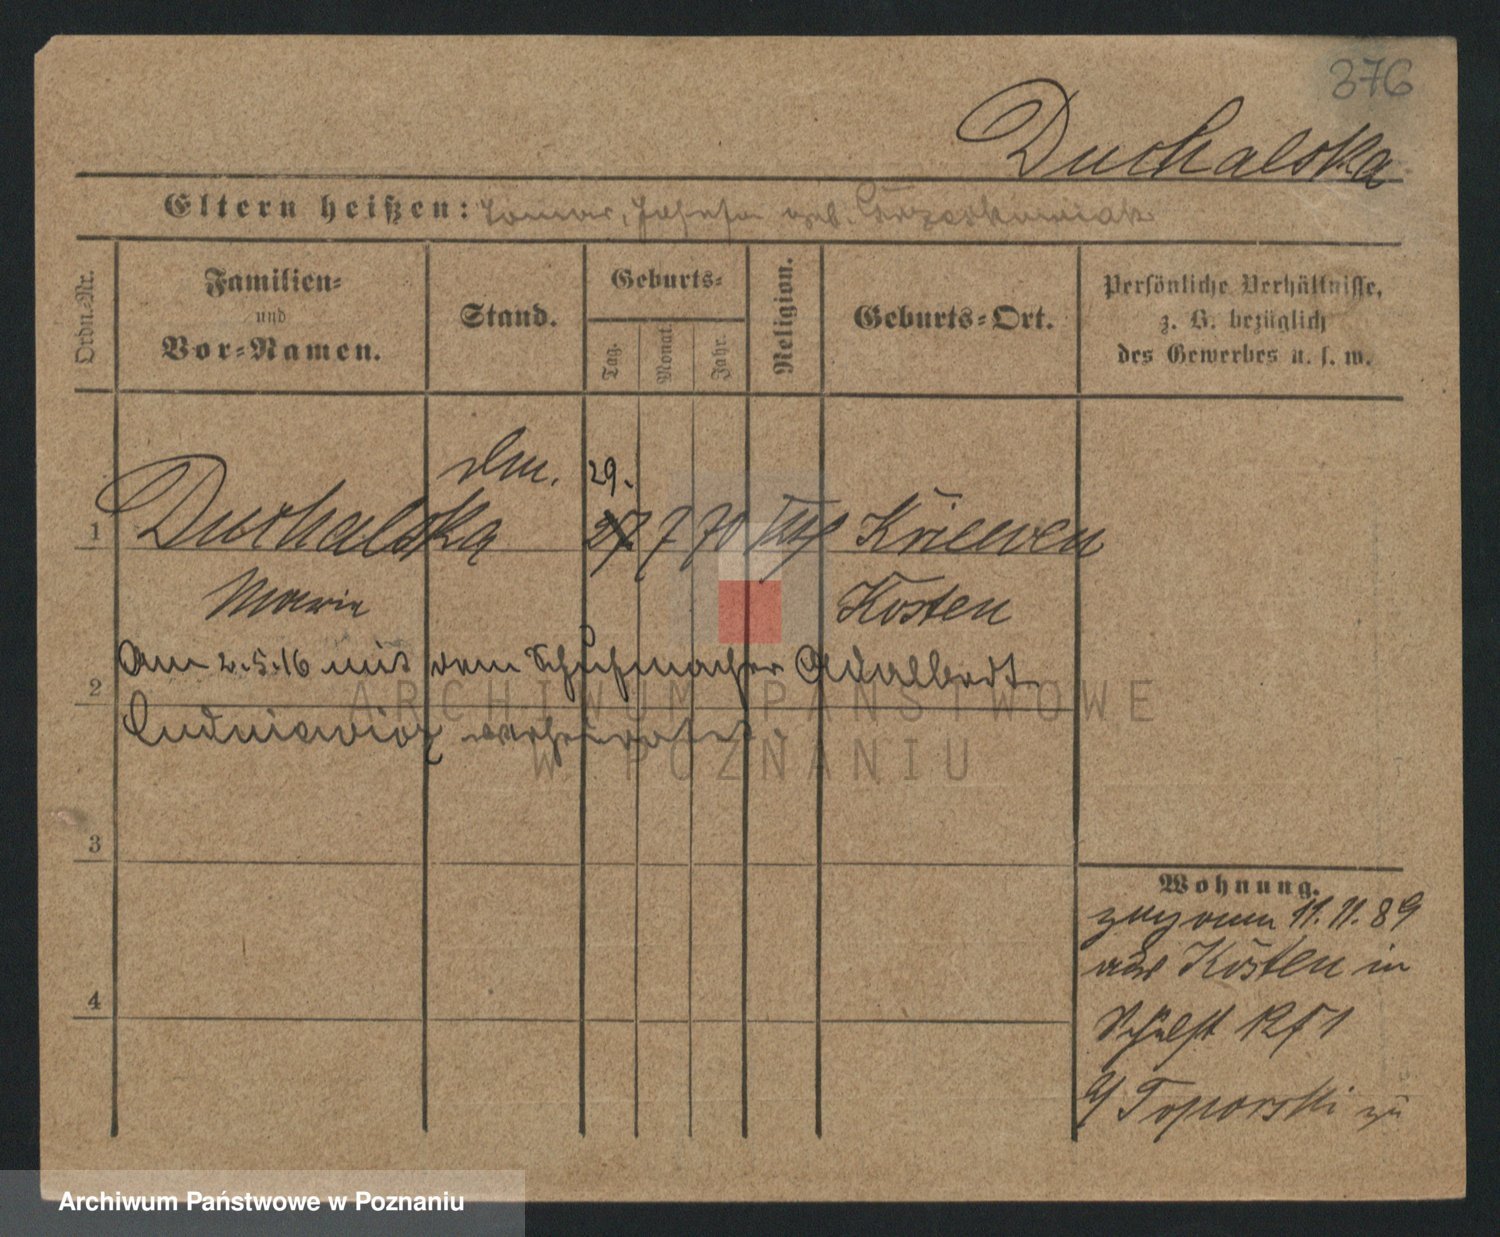 376
Duchalska
Eltern heißen: Tomas, Josefa geb.
Ordn.-Nr.
Familien-
und
Vor-Namen.
Stand.
Geburts-
Tag.
Monat.
Jahr.
Religion.
Geburts-Ort.
Persönliche Verhältnisse,
z. B. bezüglich
des Gewerbes u. s. w.
29.
1 Duchalska 27 7 70 kth Kriewen
Marie Kosten
Am 2.5.16 mit dem Schuhmacher Adalbert
2
Ludniewicz verheiratet.
3
4
Wohnung.
11.11.89
aus Kosten in
12 f 1
Toporski zu
ARCHIWUM PAŃSTWOWE
W POZNANIU
Archiwum Państwowe w Poznaniu